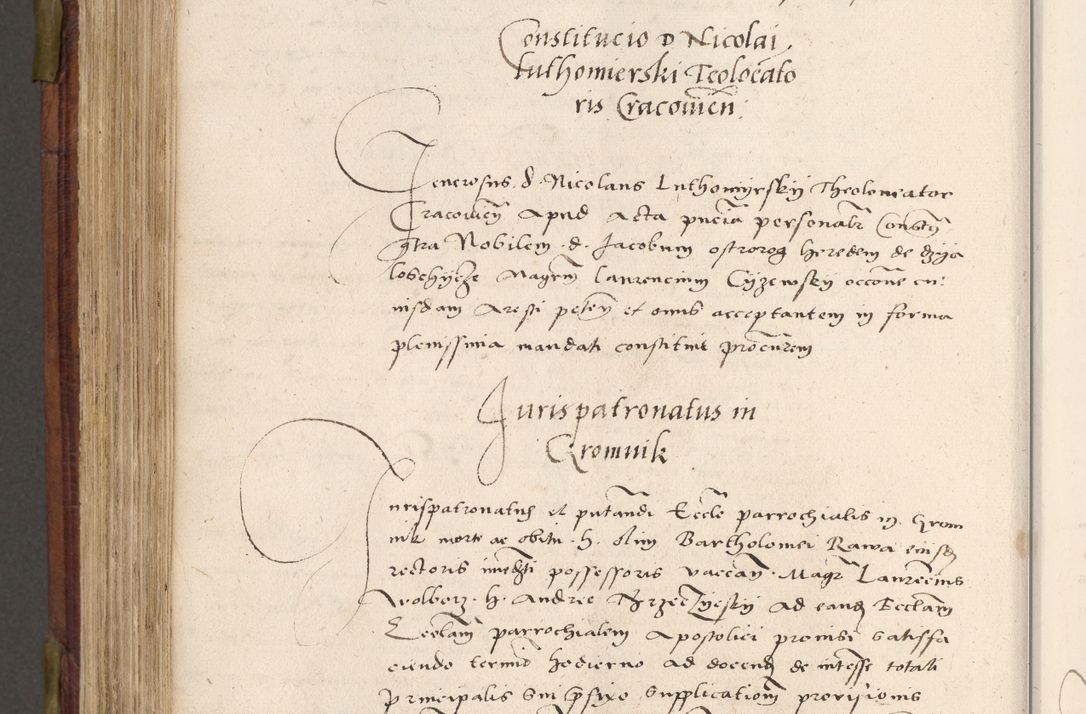 Constitucio D Nicolai
luthomierski Teolocato
ris Cracovien:
Generosus d. Nicolaus Luthomyrskÿ Theoloneator
Cracovien Apud Acta pncia personalr Consty
Nobilem d. Jacobum ostrorog heredem de
Magrm laurencium Cyzewskÿ occone cu:
iusdam Aresti et omnis acceptantem in forma
plenissima mandati constituit procurem
Jurispatronatus in
Gromnik
Jurispatronatus et putandi Eccle parrochialis in Grom
nik morte ac obitu h. olim Bartholomei Rawa
rectoris possessoris vacan Magr Laurecius
Wolborz h. Andree Ad eand Ecclam
Ecclam parrochialem Apostolici satisfa
ciendo termino hodierno ad docend de intesse totali
principalis sui supplicationi provisionis